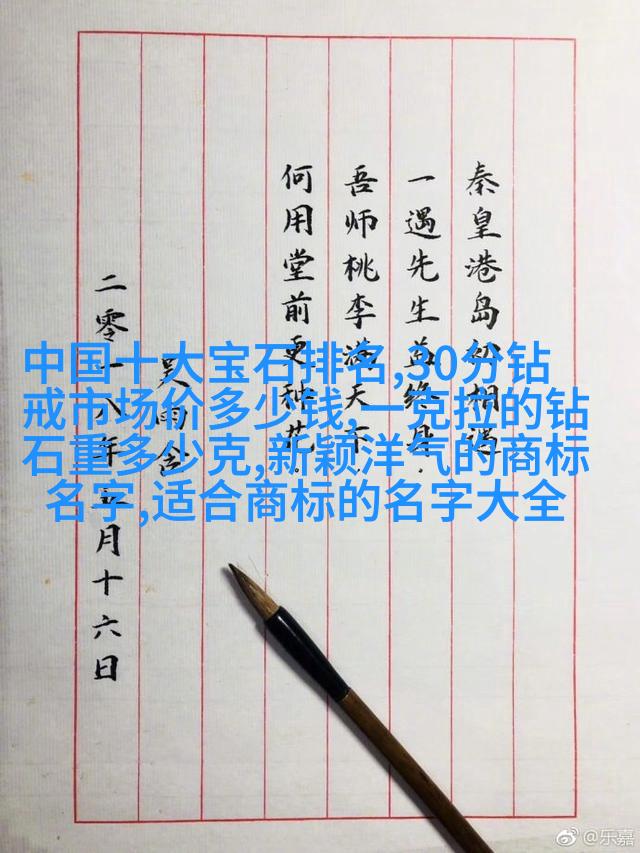 秦皇港岛初相遇
一遇先生益终身.
吾师桃李满天下.
何用堂前更种花.
吴雨
二零一八年五月十六日
中国十大宝石排名,30分钻
戒市场价多少钱,一克拉的钻
石重多少克,新颖洋气的商标
名字,适合商标的名字大全
@乐嘉